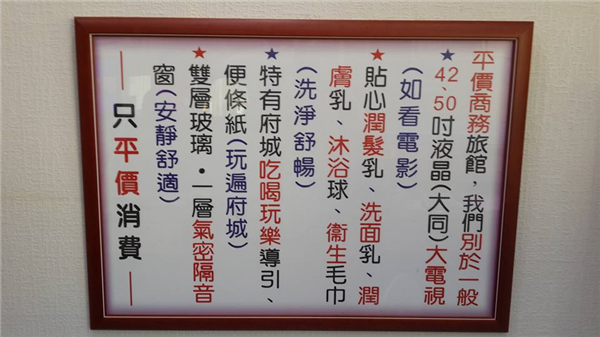 平價商務旅館，我們別於一般
★42、50吋液晶(大同)大電視
(如看電影)
★貼心潤髮乳、洗面乳、潤
膚乳、沐浴球、衞生毛巾
(洗淨舒暢)
★特有府城吃喝玩樂導引、
便條紙(玩遍府城)
★雙層玻璃·一層氣密隔音
窗(安靜舒適)
—只平價消費—